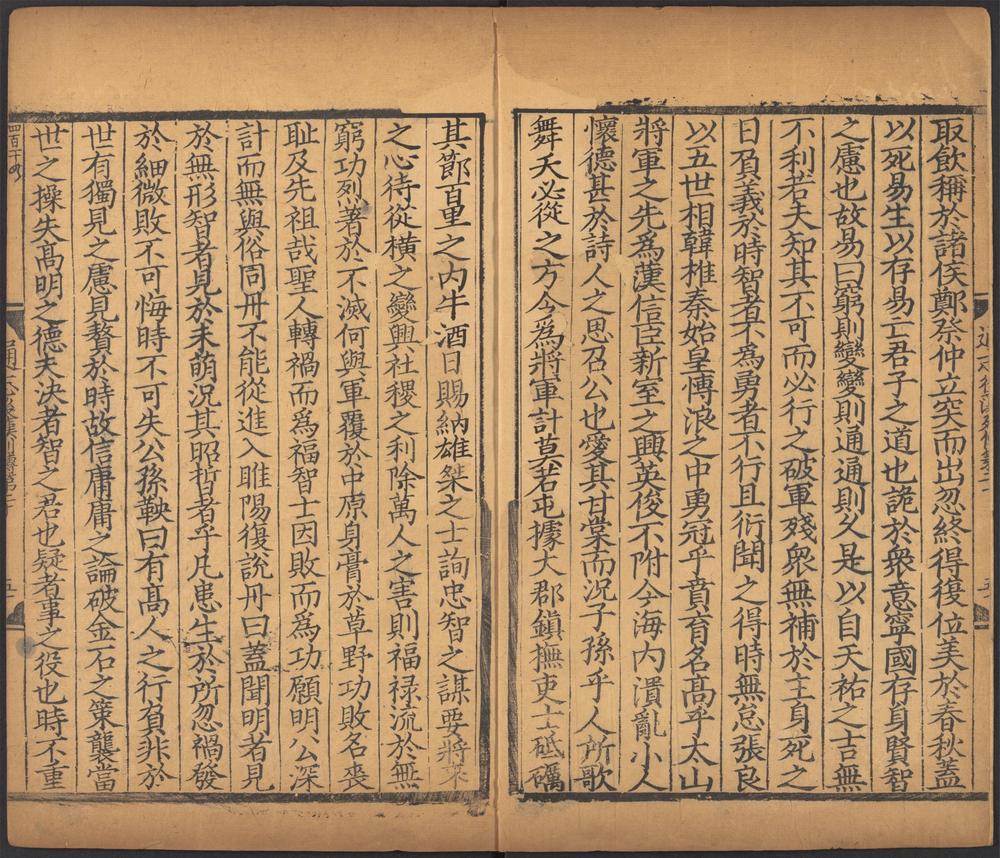 取飲稱於諸侯鄭祭仲立突而出忽終得復位美於春秋蓋
以死易生以存易亡君子之道也詭於衆意寧國存身賢智
之慮也故易曰窮則變變則通通則久是以自天祐之吉無
不利若夫知其不可而必行之破軍殘衆無補於主身死之
日負義於時智者不爲勇者不行且衍聞之得時無怠張良
以五世相韓椎秦始皇愽浪之中勇冠乎賁育名高乎太山
將軍之先爲漢信臣新室之興英俊不附今海内潰亂小人
懷德甚於詩人之思召公也愛其甘棠而況子孫乎人所歌
舞天必從之方今為將軍計莫若屯據大郡鎮撫吏士砥礪
其節百里之内牛酒日賜納雄桀之士詢忠智之謀要將來
之心待從橫之變興社稷之利除萬人之害則福禄流於無
窮功烈著於不滅何與軍覆於中原身膏於草野功敗名喪
耻及先祖哉聖人轉禍而爲福智士因敗而為功願明公深
計而無與俗同丹不能從進入睢陽復説丹曰蓋聞明者見
於無形智者見於未萌況其昭晢者乎凡患生於所忽禍發
於細微敗不可悔時不可失公孫鞅曰有高人之行負非於
世有獨見之慮見贅於時故信庸庸之論破金石之策襲當
世之操失高明之德夫決者智之君也疑者事之役也時不重